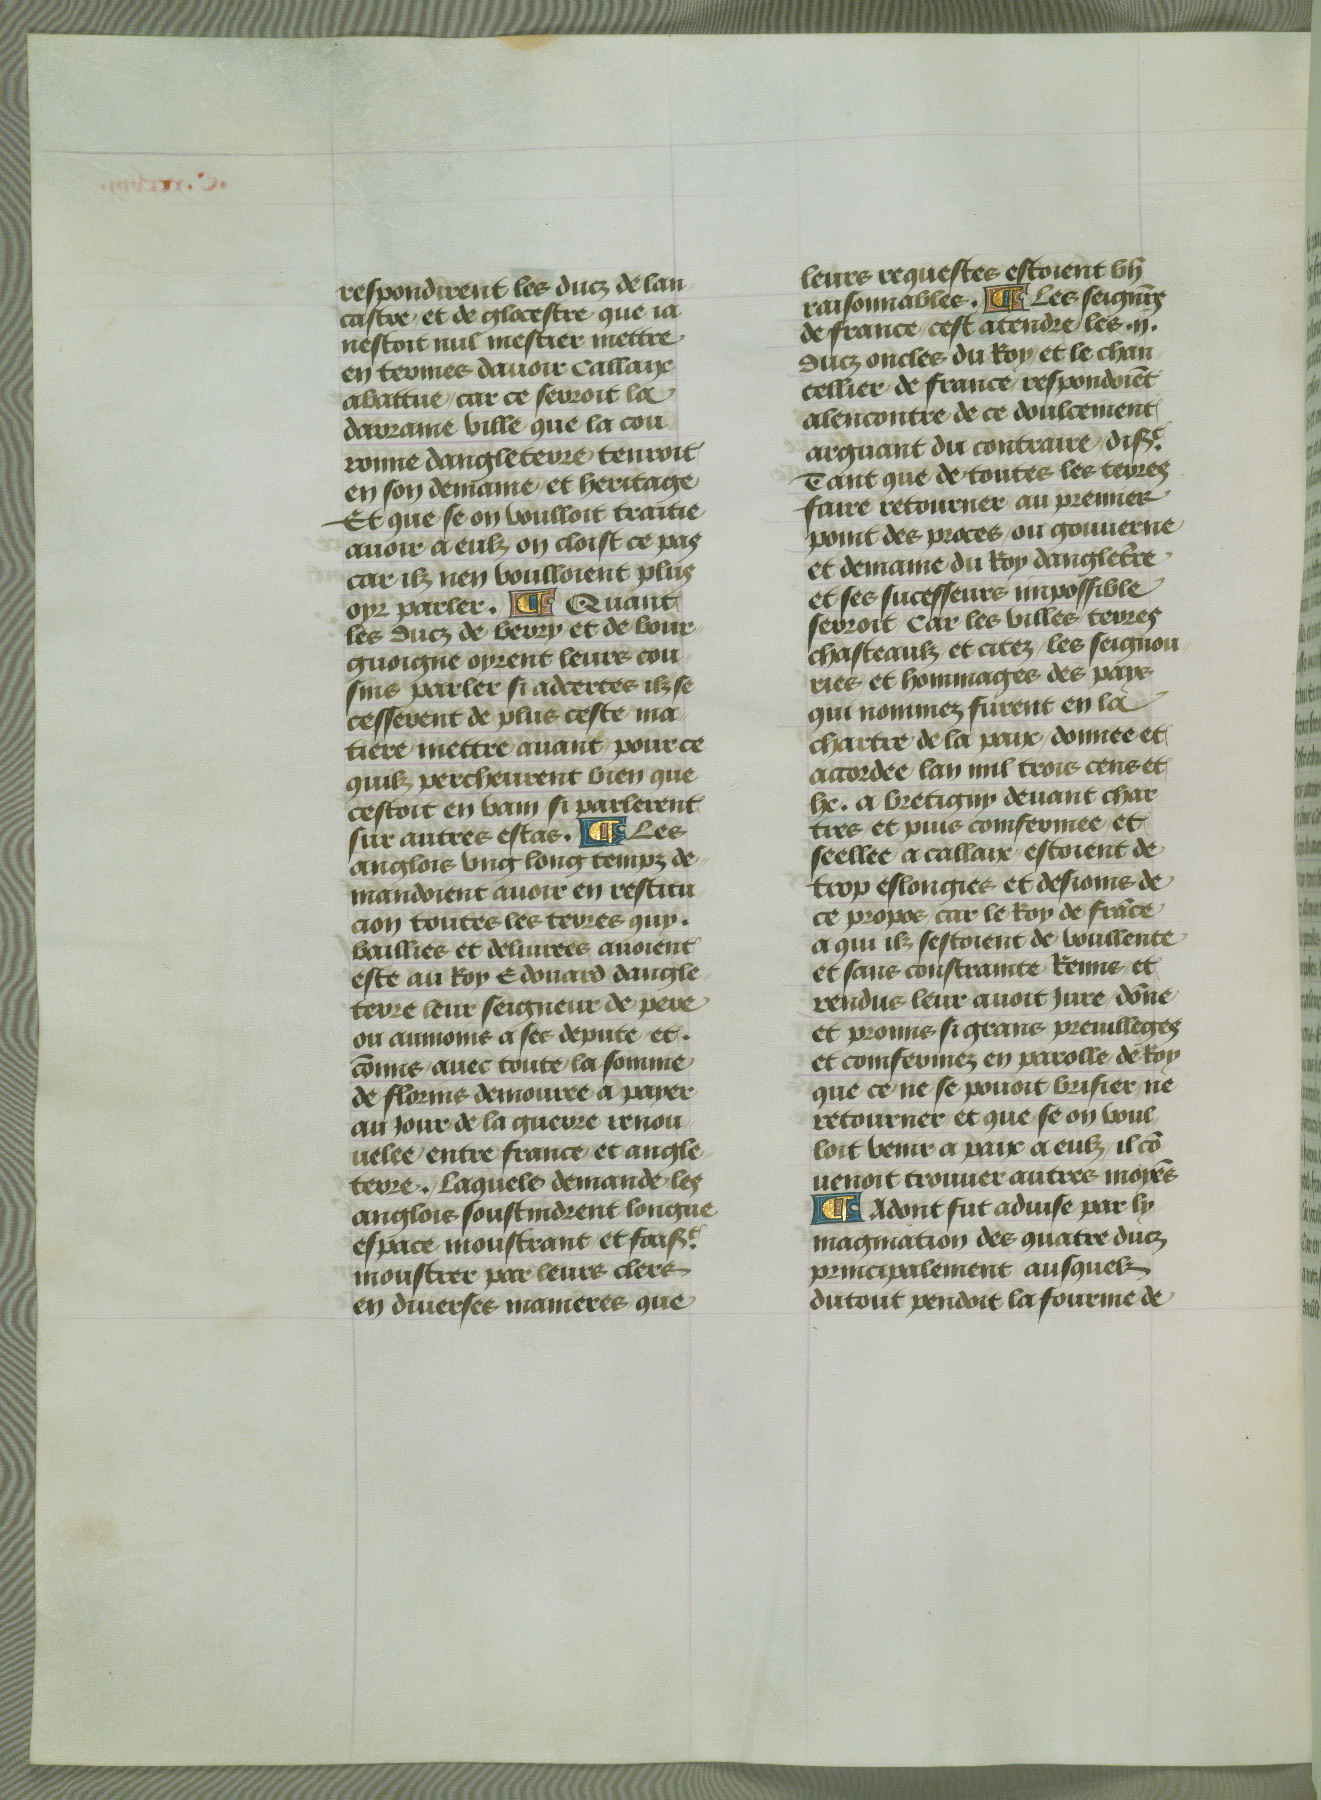 respondirent les ducz de lan
castre et de glocestre que ia
nestoit nul mestier mettre
en termes dauoir Callaix
abattue car ce seroit la
darraine ville que la cou
ronne dangleterre tenroit
en son demaine et heritage
Et que se on voulloit traitie
auoir a eulz on cloist ce pas
car ilz nen voulloient plus
oyr parler. ¶ Quant
les ducz de berry et de bour
guoigne oyrent leurs cou
sins parler si adcertes ilz se
cesserent de plus ceste ma
tiere mettre auant pour ce
quilz percheurent bien que
cestoit en vain si parlerent
sur autres estas. ¶ Les
anglois vng long tempz de
mandoient auoir en restitu
cion toutes les terres quy.
baillies et deliurees auoient
este au Roy Edouard dangle
terre leur seigneur de pere
ou aumoins a ses depute et.
cōmis auec toute la somme
de florins demouree a payer
au Jour de la guerre renou
uelee entre france et angle
terre. Laquele demande les
anglois soustindrent longue
espace moustrant et faisᵗ
moustrer par leurs clers
en diuerses manieres que
leurs requestes estoient
raisonnables. ¶ Les seignrs̄
de france cest atendre les .ij.
ducz oncles du Roy et le chan
cellier de france respondoiēt
alencontre de ce doulcement
arguant du contraire disᵗ
Tant que de toutes les terres
faire retourner au premier
point des proces ou gouuerne
et demaine du Roy dangletr̄e
et ses sucesseurs impossible
seroit Car les villes terres
chasteaulz et citez les seignou
ries et hommages des pays
qui nommez furent en la
chartre de la paix donnee et
accordee lan mil trois cens et
lx. a bretigny deuant char
tres et puis confermee et
seellee a callaix estoient de
trop eslongies et desioins de
ce propos car le Roy de frāce
a qui ilz sestoient de voullente
et sans constrainte Renis et
rendus leur auoit Jure dōne
et promis si grans preuilleges
et comfermez en parolle de Roy
que ce ne se pouoit brisier ne
retourner et que se on voul
loit venir a paix a eulz il cō
uenoit trouuer autres moyēs
¶ Adont fut aduise par ly
magination des quatre ducz
principalement ausquelz
dutout pendoit la fourme de